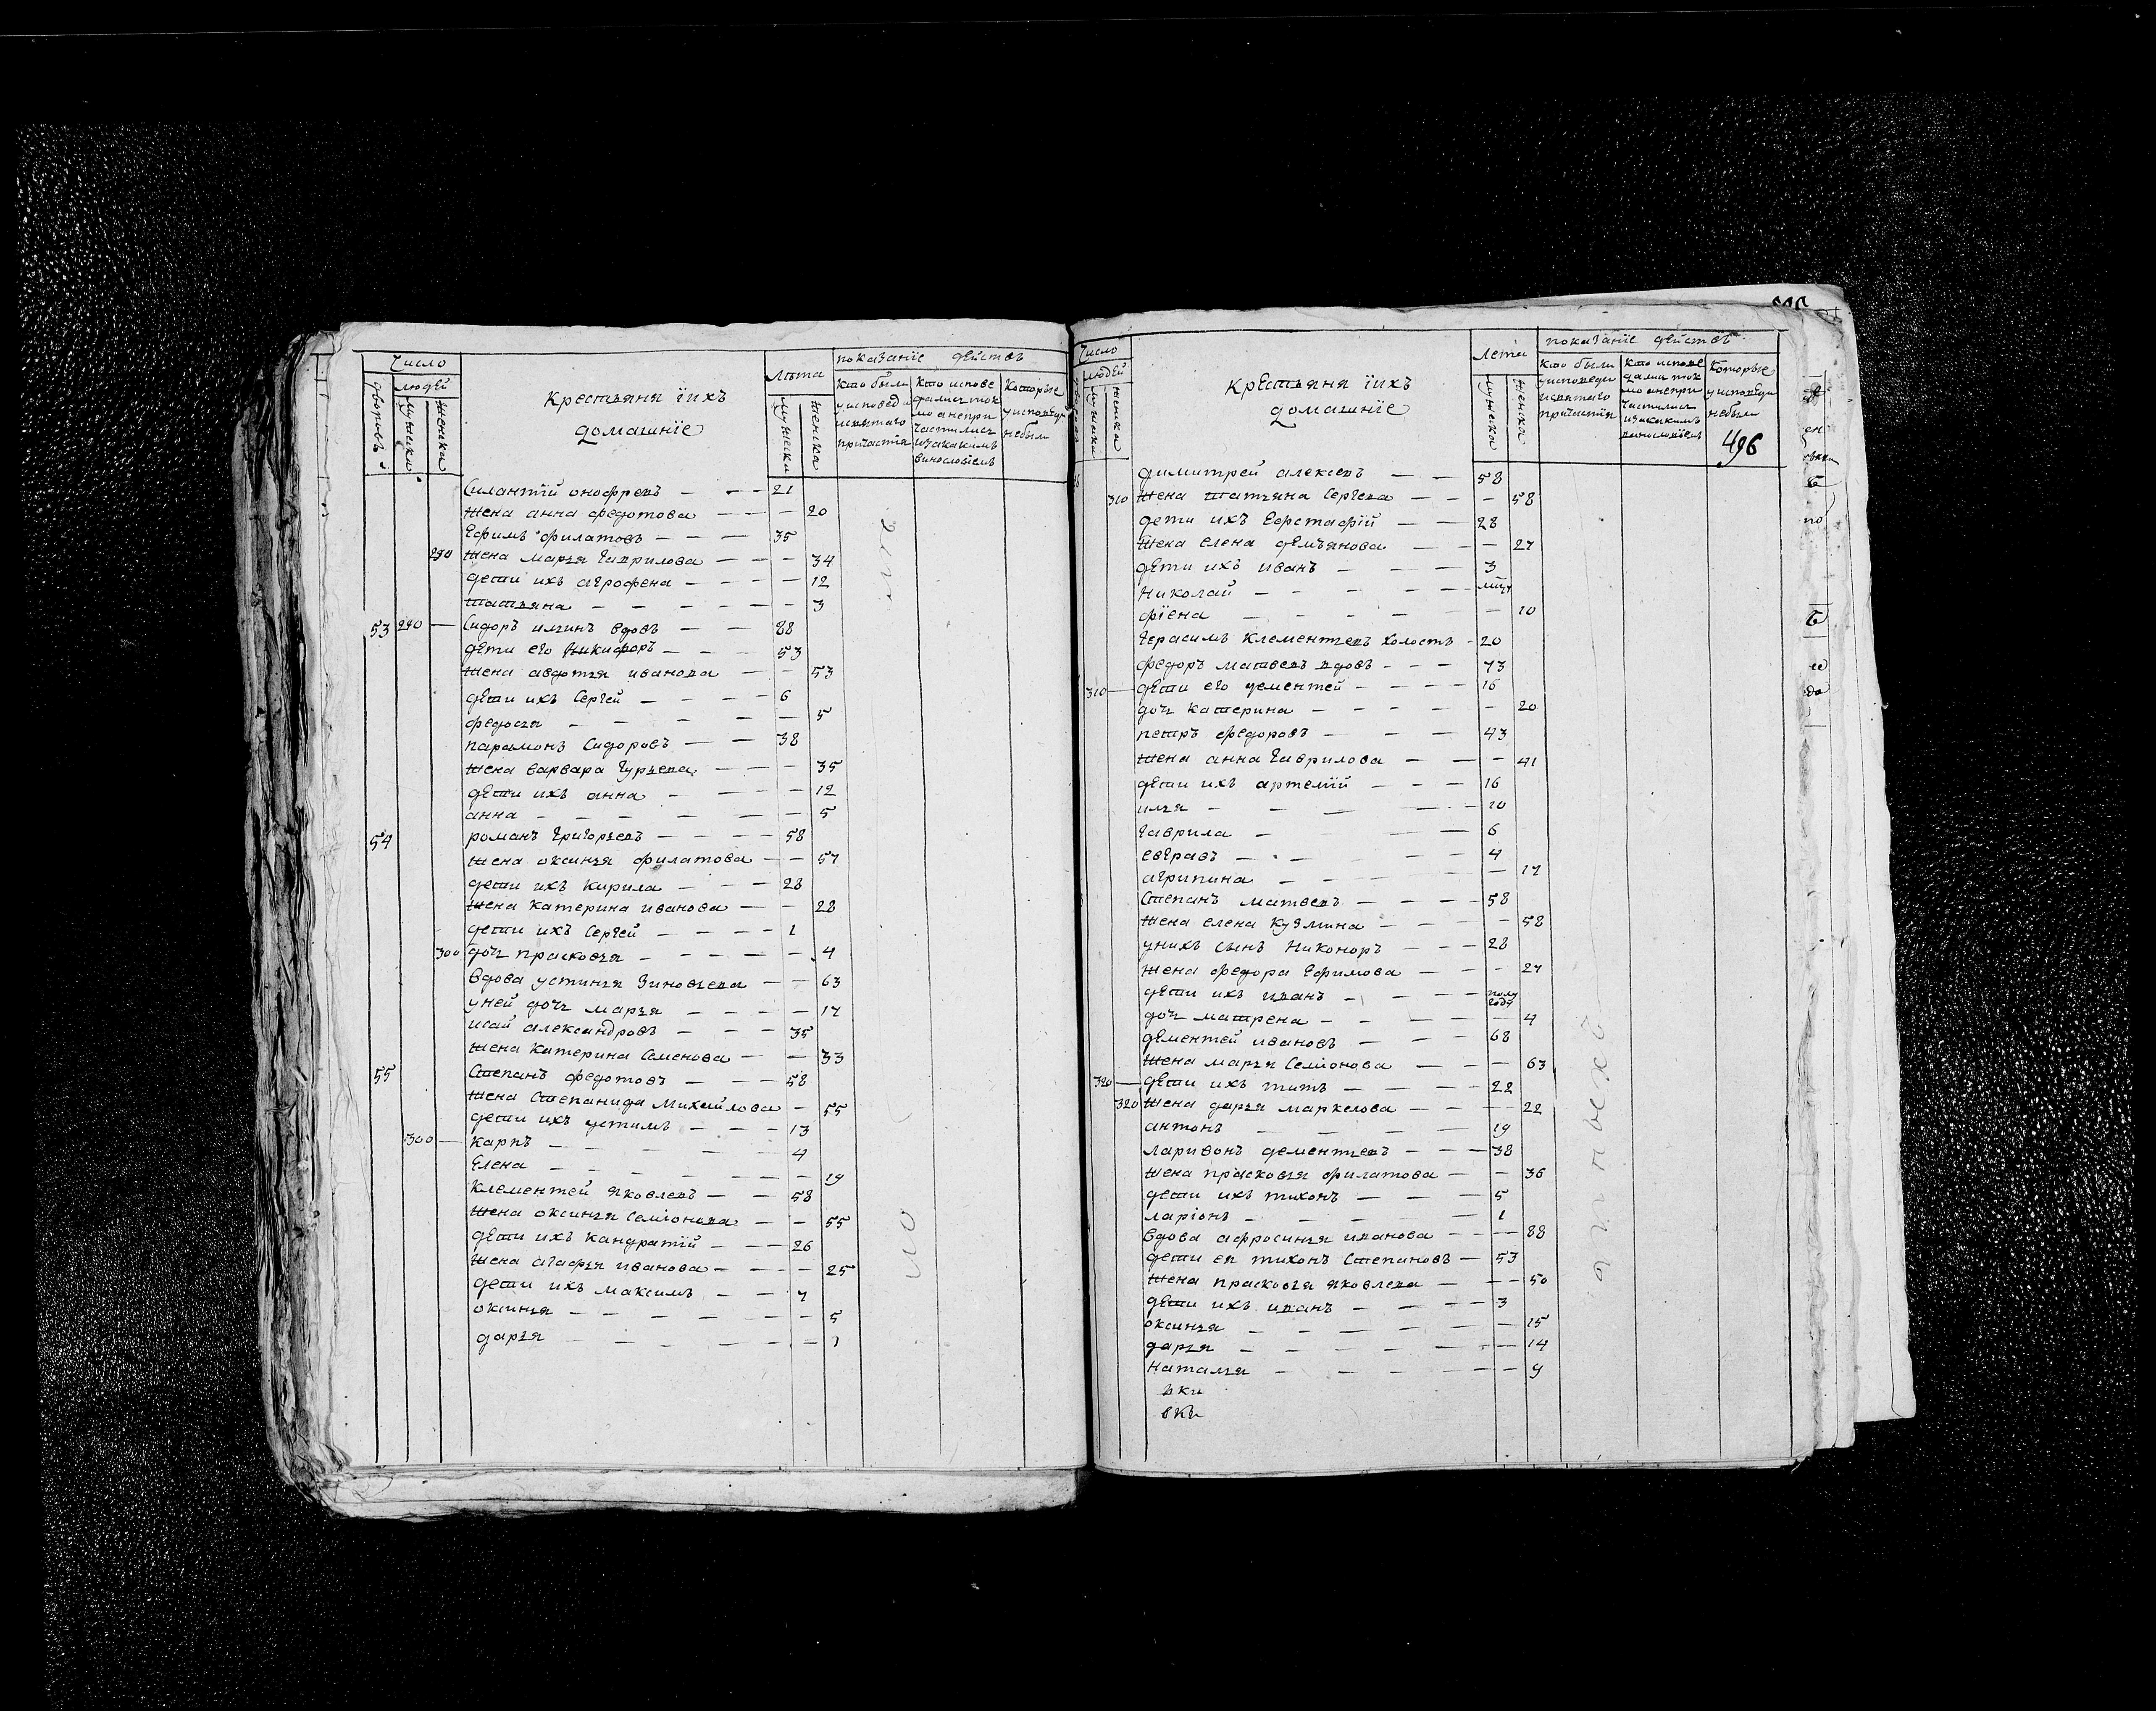 Число
людей
дворовъ
мужеска
женска
крестьяня їихъ
домашнїе
лѣта
мужеска
женска
показанїе действъ
кто были
уисповеди
исвятаго
причастїя
кто испове
дались ток
мо анепри
частились
изакакимъ
винословїемъ
которые
уисповеди
небыли
Силантїй онофревъ — — — 21
жена анна федотова — — — 20
Ефимъ филатовъ — — — 35
290 жена марья Гаврилова — — — 34
дети ихъ агрофена — — — — 12
татьяна — — — — — — 3
53 290 — Сидоръ ильинъ вдовъ — — 88
дети его Никифоръ — — — 53
жена авдотья иванова — — 53
дети ихъ Сергей — — — 6
федосья — — — — — — 5
парамонъ Сидоровъ — — 38
жена варвара Гурьева — — — 35
дети ихъ анна — — — — 12
анна — — — — — — 5
54 романъ Григорьевъ — — — — 58
жена оксинья филатова — — 57
дети ихъ Кирила — — — 28
жена катерина иванова — — 28
дети ихъ Сергей — — — — 1
300 дочь прасковья — — — — — 4
вдова устинья Зиновьева — — 63
уней дочь марья — — — — — 17
исай александровъ — — — 35
жена катерина Семенова — — 33
55 Степанъ федотовъ — — — 58
жена Степанида Михайлова — 55
дети ихъ устимъ — — — 13
300 — карпъ — — — — — 4
Елена — — — — — — 19
Клементей яковлевъ — — 58
жена оксинья Семіонова — — 55
дети ихъ Кандратїй — — — 26
жена агафья иванова — — — — 25
дети ихъ Максимъ — — 7
оксинья — — — — — — 5
дарья — — — — — 1
Число
людей
мужеска
женска
крестьяня їихъ
домашнїе
лета
мужеска
женска
показанїе действъ
кто были
уисповеди
исвятаго
причастїя
кто испове
дались ток
мо анепри
частились
изакакимъ
винословїемъ
которые
уисповеди
небыли
496
димитрей алексевъ — — 58
310 жена татьяна Сергева — — — 58
дети ихъ Ефстафїй — — 28
жена елена демьянова — — — 27
дети ихъ иванъ — — — 3
Николай — — — — —
фїена — — — — — — 10
Герасимъ Клементьевъ холостъ - 20
федоръ матвевъ вдовъ — — — 73
310 — дети его дементей — — — — 16
дочь катерина — — — — — 20
петръ федоровъ — — — 43
жена анна Гаврилова — — — 41
дети ихъ артемїй — — — 16
илья — — — — — 10
Гаврила — — — 6
евГравъ — — — — 4
агрипина — — — — — 17
Степанъ матвевъ — — — — 58
жена елена кузмина — — — 58
унихъ сынъ Никоноръ — — — 28
жена федора Ефимова — — — 27
дети ихъ иванъ — — — — полу года
дочь матрена — — — — — 4
дементей ивановъ — — — 68
жена марья Семіонова — — — 63
320 — дети ихъ титъ — — — — 22
320 жена дарья маркелова — — — — 22
антонъ — — — — 19
ларивонъ дементьевъ — — — 38
жена прасковья филатова — — 36
дети ихъ тихонъ — — — 5
ларіонъ — — — — — 1
вдова афросинья иванова — — — — 88
дети ея тихонъ Степановъ — 53
жена прасковья яковлева — — — 50
дети ихъ иванъ — — — — 3
оксинья — — — — — — 15
дарья — — — — — — 14
наталья — — — — — — 9